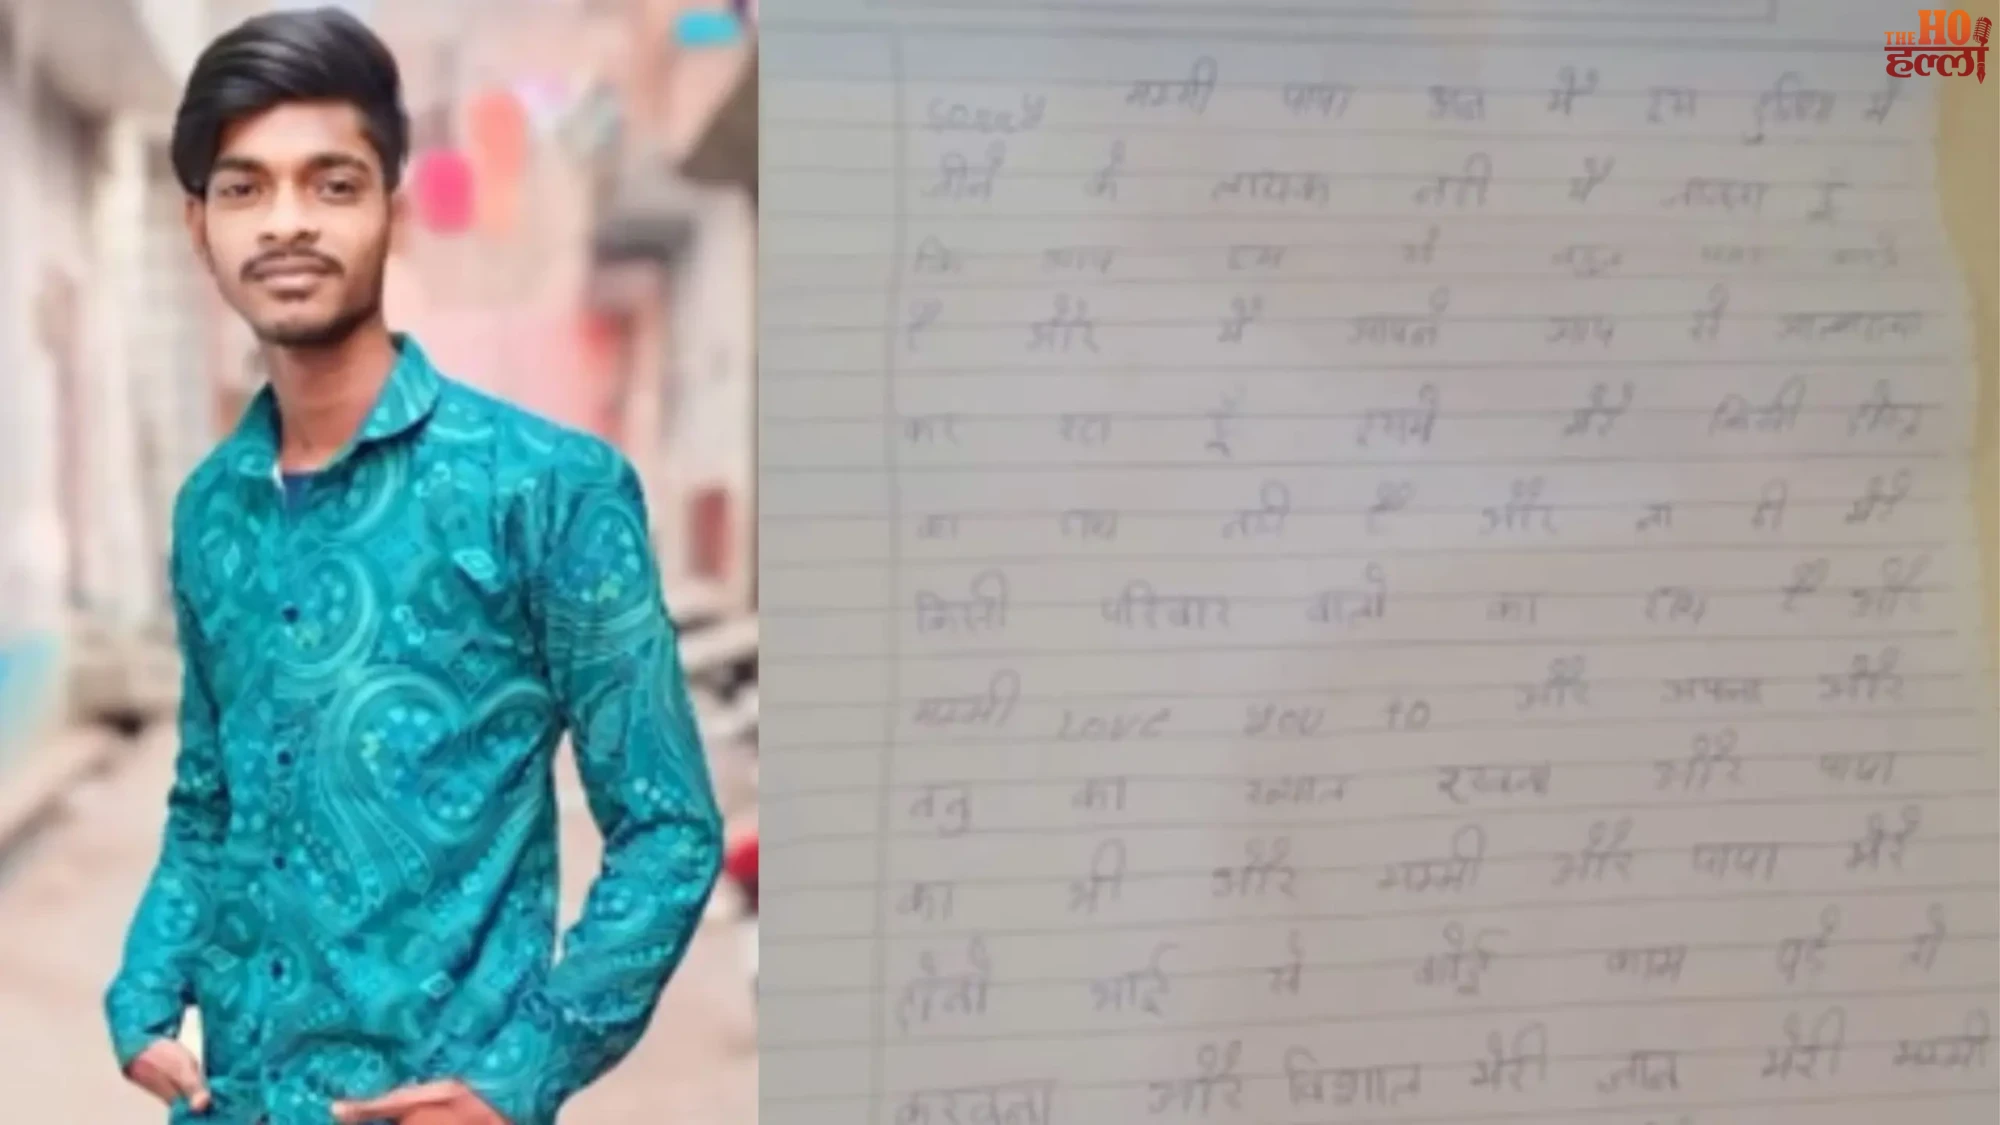 THE HO
हल्ला
sorry मम्मी पापा अब मैं इस दुनिया में
जीने के लायक नहीं मैं जानता हूँ
कि आप हम से बहुत प्यार करते
है और मैं आपने आप से आत्महत्या
कर रहा हूँ इसमे मेरे किसी दोस्त
का हाथ नही है और ना ही मेरे
किसी परिवार वालो का हाथ है और
मम्मी Love you to और अपना और
तनु का ख्याल रखना और पापा
का भी और मम्मी और पापा मेरे
दोनो भाई से कोई काम
करवाना और विशाल मेरी जान मेरी मम्मी